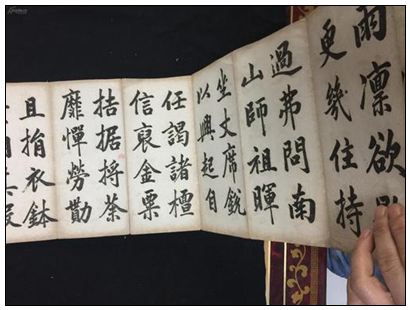 雨凛欲
更幾住持
過弗問南
山師祖暉
坐丈席銳
以興起自
任謁諸檀
信裒金粟
拮据捋荼
靡憚勞勩
且捐衣鉢